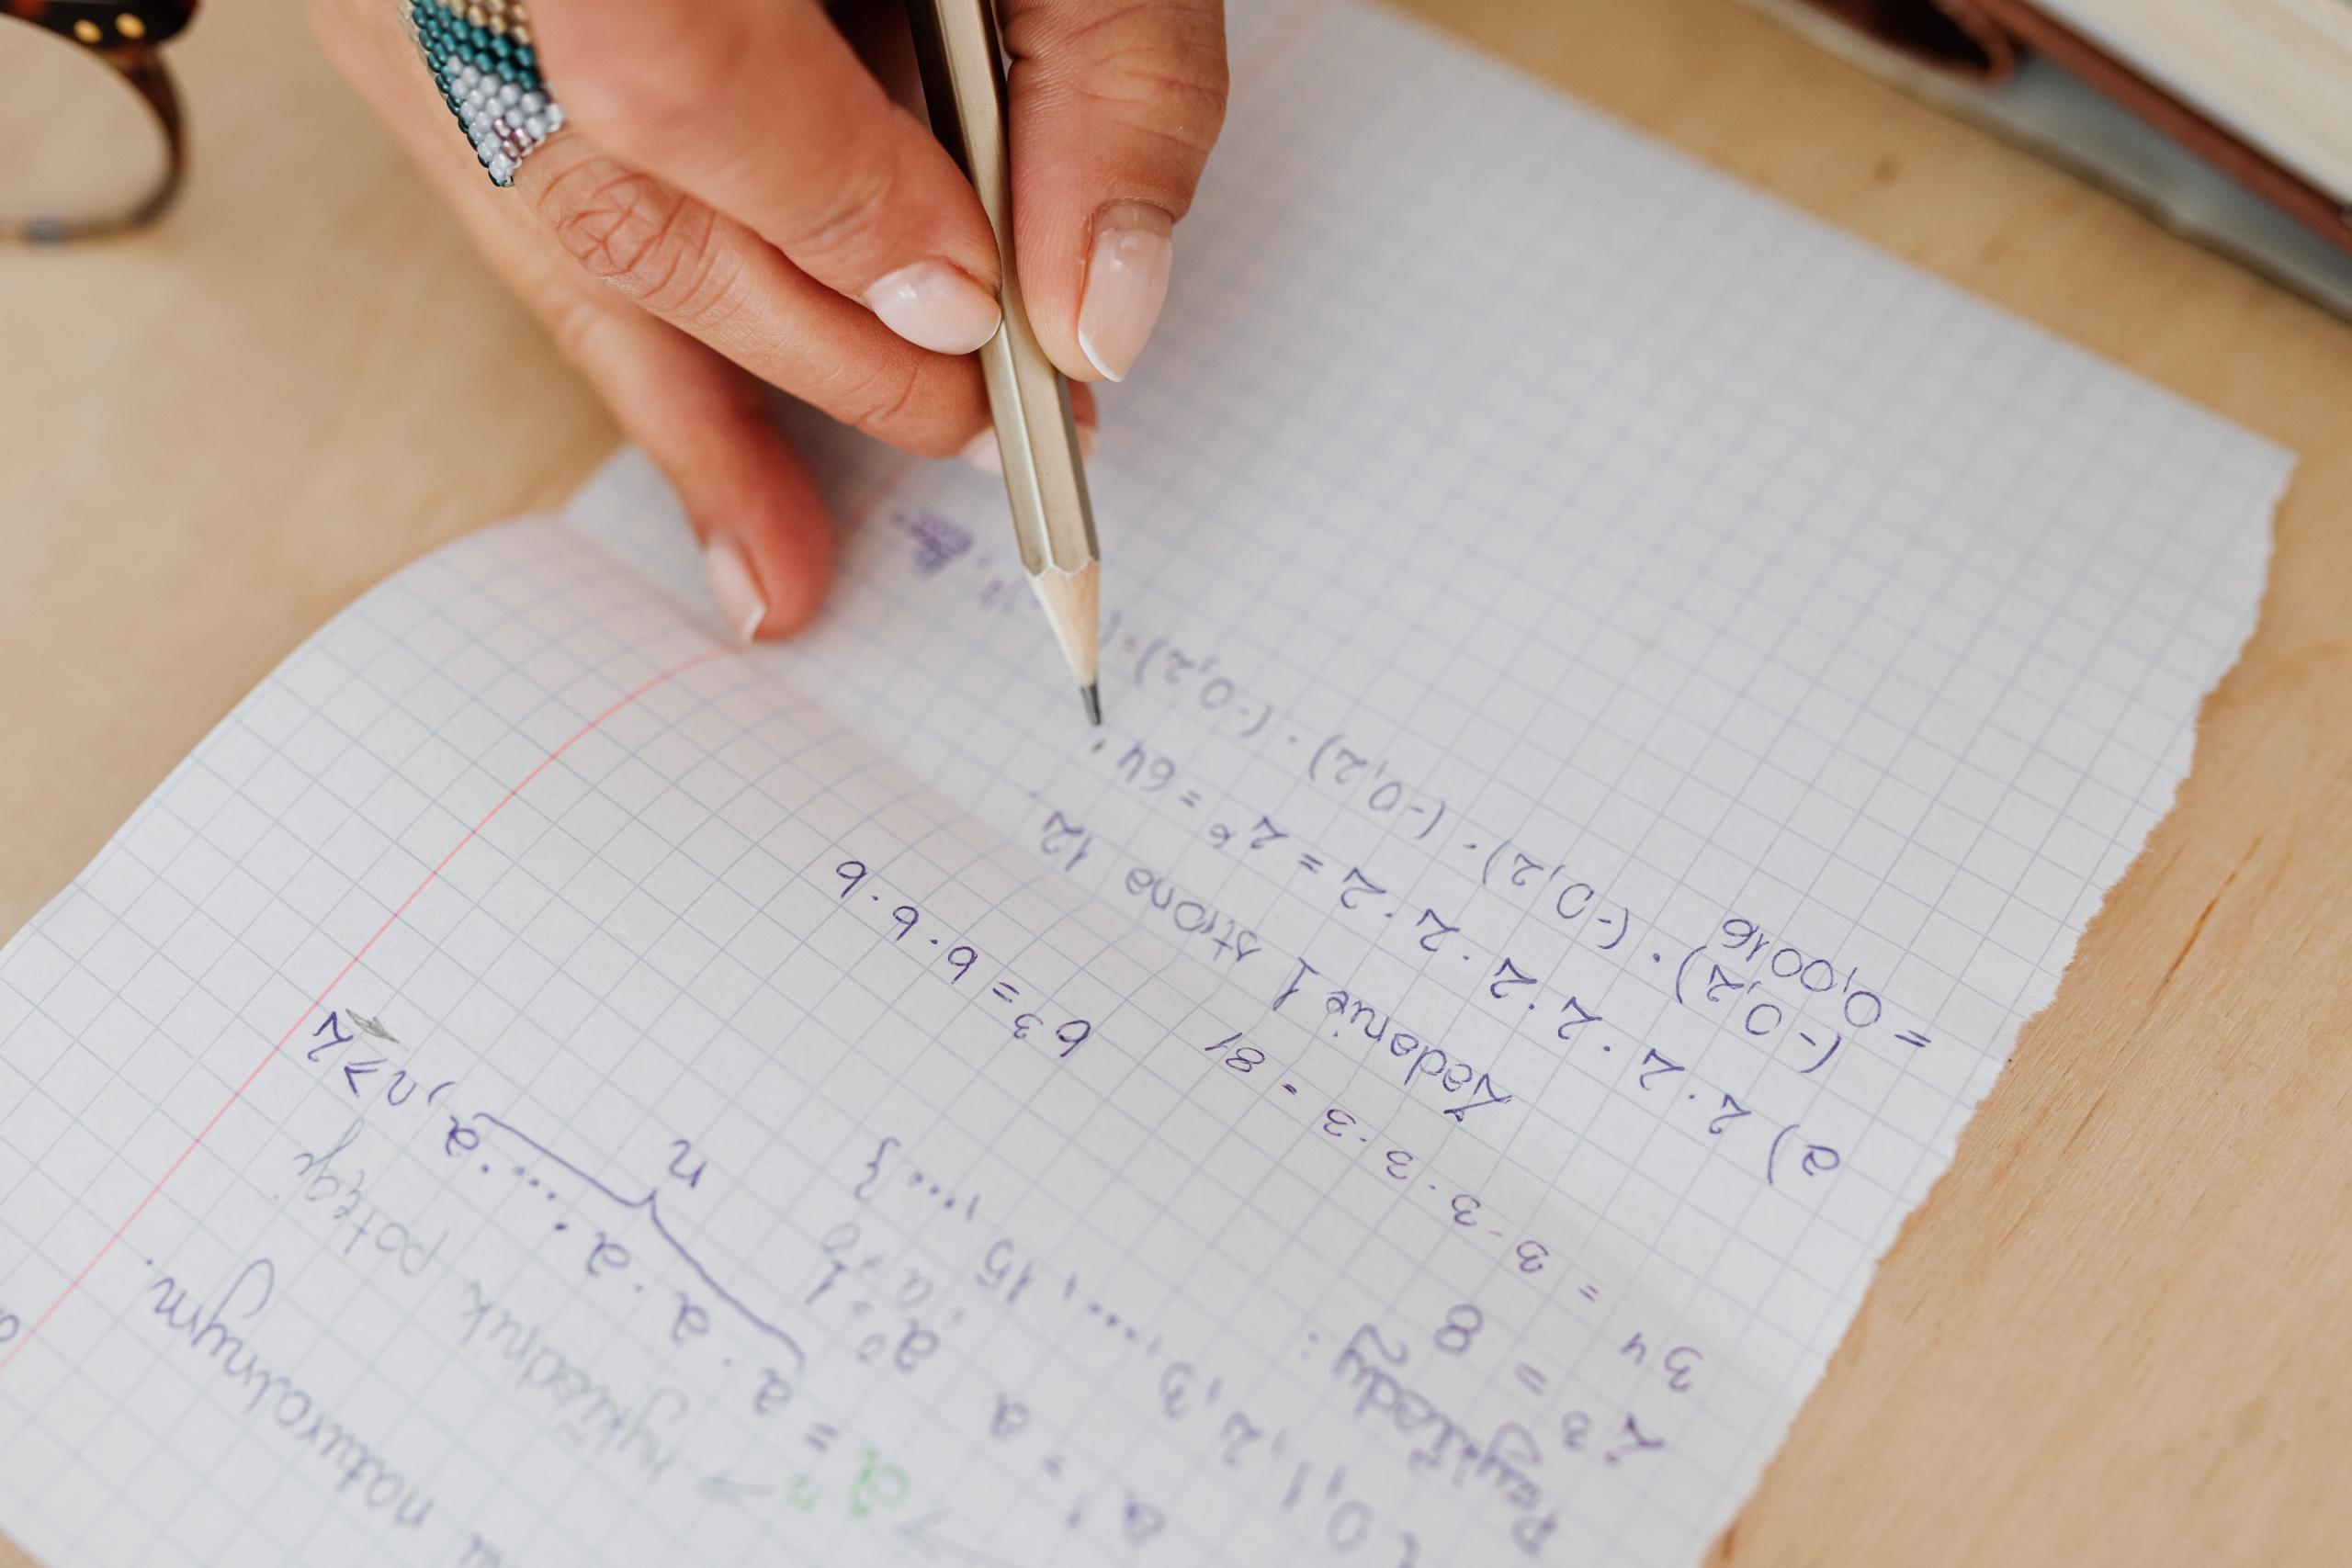 naturalnym.
→ wykładnik potęgi
aⁿ = a · a · a · .... · a, n ≥ 2
n
a¹ = a a⁰ = 1, a ≠ 0
{0,1,2,3,...,15,...}
Przykłady:
2³ = 8
3⁴ = 3·3·3·3 = 81 b³ = b·b·b
Zadanie 1 strona 12
a) 2·2·2·2·2·2 = 2⁶ = 64
(-0,2)·(-0,2)·(-0,2)·(-0,2)
= 0,0016